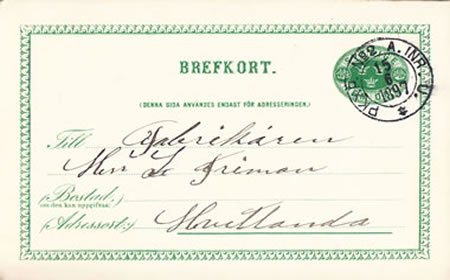 BREFKORT.
PKXP. No2. A. INR. U.
15
6
1897
(DENNA SIDA ANVÄNDES ENDAST FÖR ADRESSERINGEN.)
Till Fabrikören
Herr L
(Bostad:)
(om den kan uppgifvas)
(Adressort:) Hvetlanda